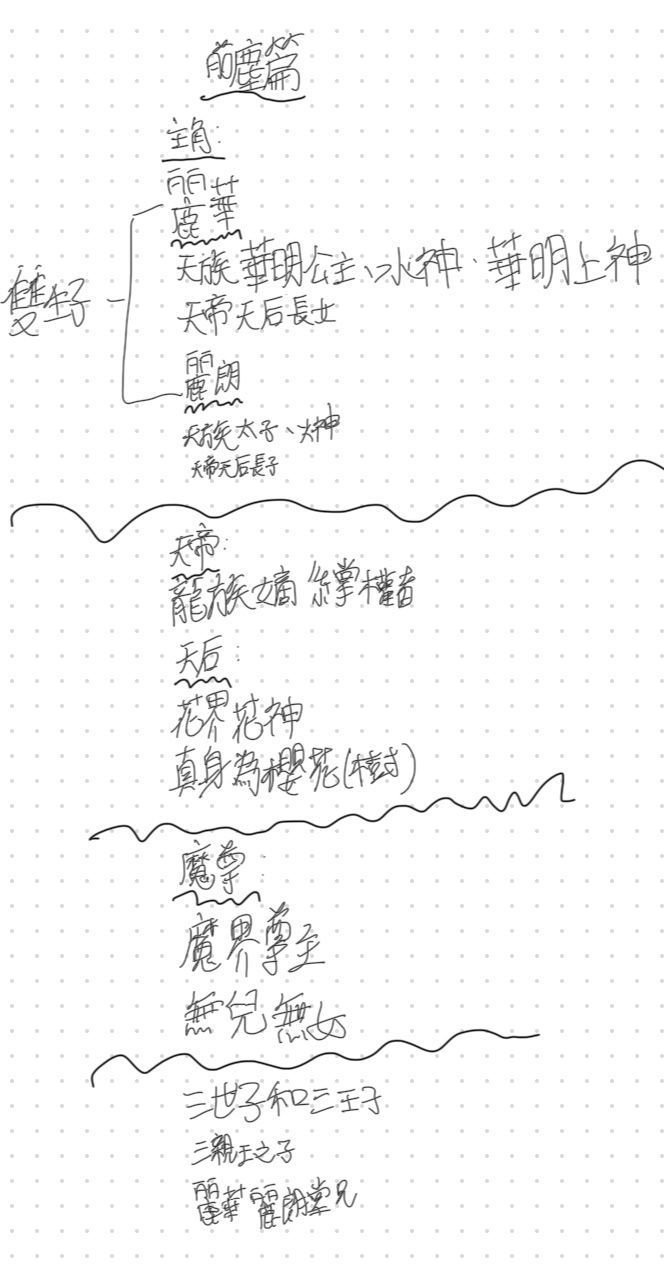 前塵篇
主角:
麗華
雙子
天族 華明公主、水神、華明上神
天帝天后長女
麗朗
天族太子、火神
天帝天后長子
天帝:
龍族嫡 掌權者
天后:
花界花神
真身為櫻花(樹)
魔尊:
魔界尊主
無兒無女
三世子和三王子
三親王之子
麗華麗朗堂兄